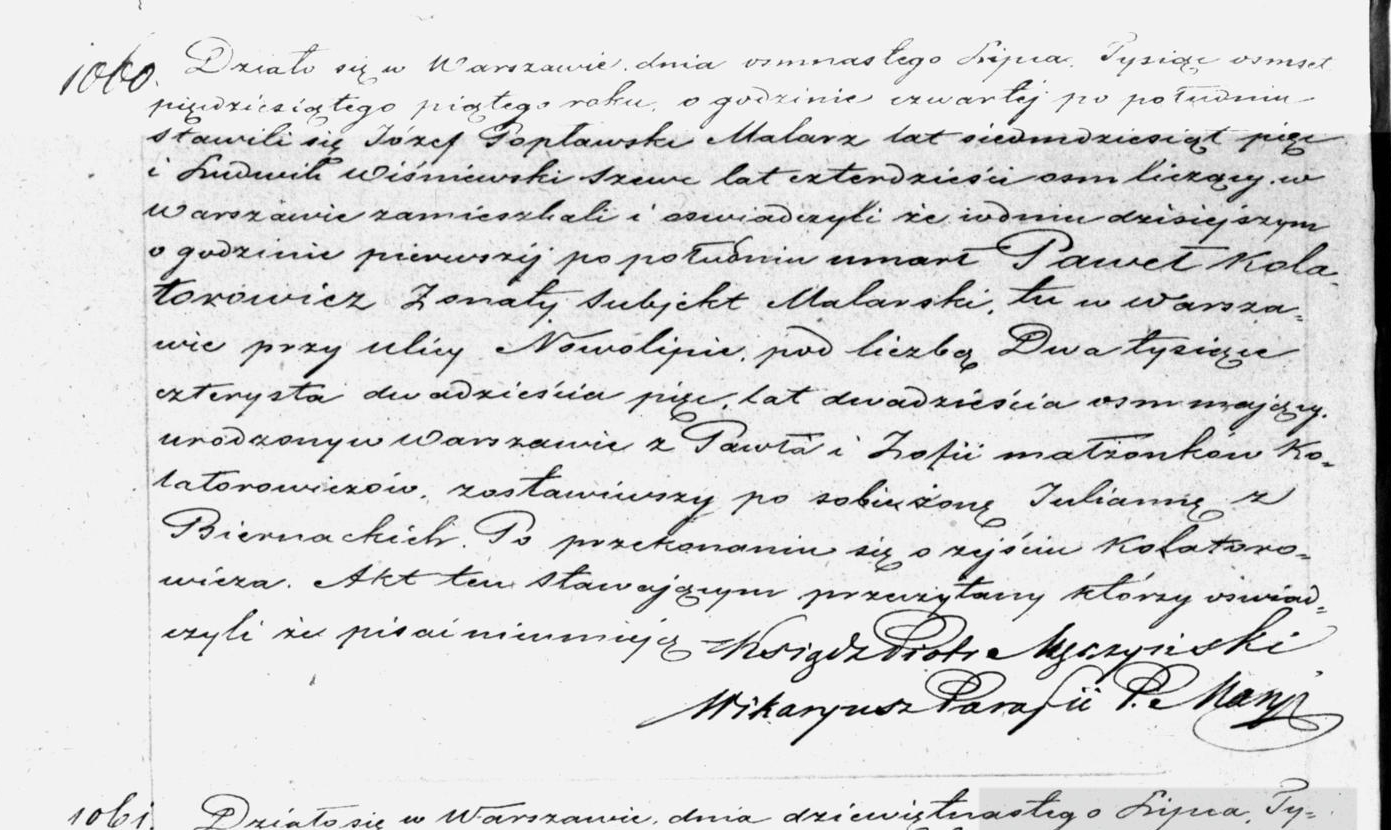 1060. Działo się w Warszawie, dnia osmnastego Lipca, Tysiąc osmset
pięćdziesiątego piątego roku, o godzinie czwartéj po południu
stawili się Józef Popławski Malarz lat siedmdziesiąt pięć
i Ludwik Wiśniewski Szewc lat czterdzieści osm liczący, w
Warszawie zamieszkali i oswiadczyli że w dniu dzisiejszym
o godzinie pierwszéj po południu umarł Paweł Kola-
torowicz Żonaty Subjekt Malarski, tu w Warsza-
wie przy ulicy Nowolipie, pod liczbą Dwa tysiące
czterysta dwadzieścia pięć, lat dwadzieścia osm mający,
urodzony w Warszawie z Pawła i Zofii małżonków Ko-
latorowiczów, zostawiwszy po sobie żonę Juliannę z
Biernackich. Po przekonaniu się o zejściu Kolatoro-
wicza. Akt ten stawającym przeczytany którzy oswiad-
czyli że pisać nieumieją Ksiądz Piotr
Wikaryusz Parafii P. Maryi
1061. Działo się w Warszawie, dnia dziewiętnastego Lipca, Ty-